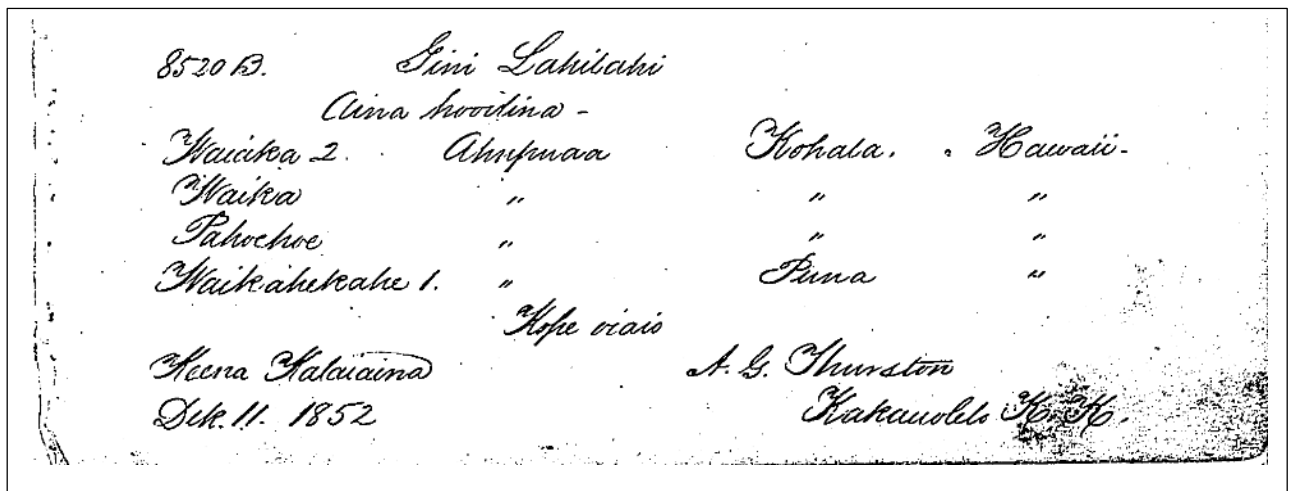 8520 B. Gini Lahilahi
Aina hooilina -
Waiaka 2. Ahupuaa Kohala. Hawaii.
Waika " " "
Pahoehoe " " "
Waikahekahe 1. " Puna "
Kope oiaio
Keena Kalaiaina A. G. Thurston
Dek. 11. 1852 Kakauolelo K. K.